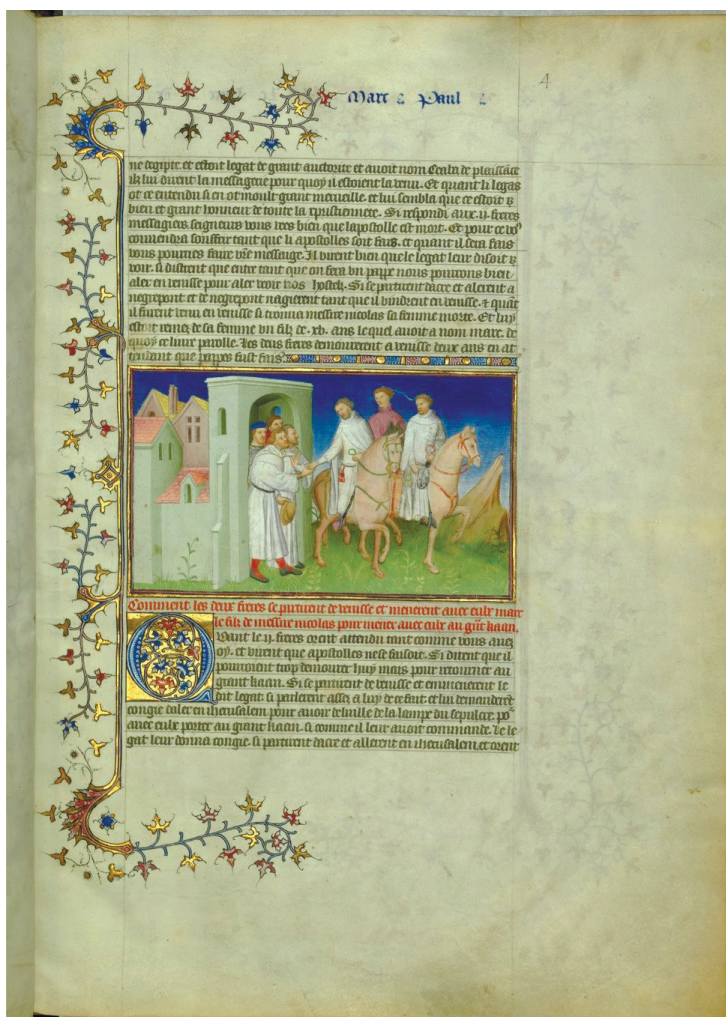 Marc ⁊ Paul
4
ne degipte. et estoit legat de grant auctorite et auoit nom Ceabz de plaisãce
ilz lui dirent la messagerie pour quoy il estoient la venu. Et quant li legas
ot ce entendu si en ot moult grant merueille. et lui sembla que ce estoit
bien et grant honneur de toute la crestiennete. Si respondi aux .ij. freres
messagiers seigneurs vous vees bien que lapostolle est mort. Et pour ce vo9
conuendra souffrir tant que li apostolles soit fais. et quant il sera fais
vous pourries faire vr̃e messaige. Il virent bien que le legat leur disoit
voir. si distrent que entre tant que on fera vn pappe nous pourrons bien
aler en venisse pour aler veoir nos hostelz. Si se partirent dacre et alerent a
negrepont et de negrepont nagierent tant que il vindrent en venisse. ⁊ quãt
il furent venu en venisse si trouua messire nicolas sa femme morte. Et luy
estoit remez de sa femme vn filz de .xv. ans lequel auoit a nom marc. de
quoy ce liure parolle. Les deus freres demourerent a venisse deux ans en at
tendant que pappes fust fais.
Comment les deux freres se partirent de venisse et menerent auec eulx marc
le filz de messire nicolas pour mener auec eulx au grãt kaan.
Quant le .ij. freres orent attendu tant comme vous auez
oy. et virent que apostolles ne se faisoit. Si dirent que il
pourroient trop demourer huy mais pour retourner au
grant kaan. Si se partirent de venisse et emmenerent le
dit legat. si parlerent assez a luy de ce fait. et lui demanderẽt
congie daler en iherusalem pour auoir de luille de la lampe du sepulcre. po2
auec eulx porter au grant kaan. si comme il leur auoit commande. Le le
gat leur donna congie. si partirent dacre et allerent en iherusalem. et orent